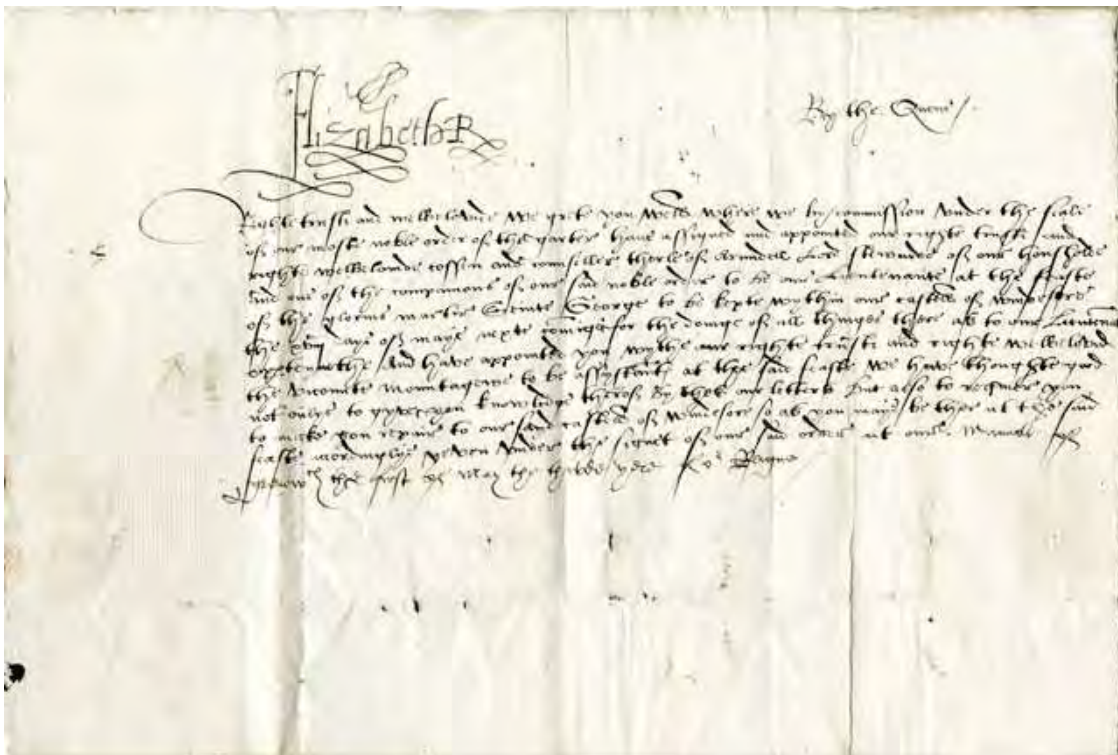 Elizabeth R
By the Quene
Righte trustie and welbelovede we grete you well where we by commission under the seale
of our moste noble order of the garter have assigned and appointed our righte trustie and
righte welbelovede cossin and counsiller therle of Arundell Lord stewarde of our housholde
and one of the companions of our said noble order to be our Lieutenante at the feaste
of the glorius martir Seinte George to be kepte within our castell of windesore
the daye of maye nexte for the doinge of all thinges there as to our Lieutenant
apperteineth And have appointed you withe our righte trustie and right welbeloved
the vicomte mountague to be assistant at the said feaste we have thoughte good
not onlye to gyve you knowledge therof by thes our letters but also to require you
to make you repaire to our said castell of windesore so as you maye be ther at the said
feaste accordinglye yeven under the signet of our said order at our Mannor of
the first of May the thirde yere of our Reigne